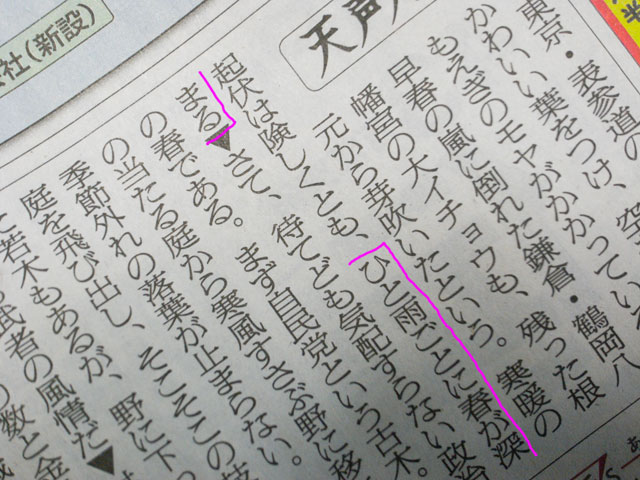 天声人
社（新設）
東京・表参道の
かわいい葉をつけ、空
もえぎのモヤがかかってい
早春の嵐に倒れた鎌倉・鶴岡八
幡宮の大イチョウも、残った根
元から芽吹いたという。寒暖の
起伏は険しくとも、ひと雨ごとに春が深
まる▼さて、待てども気配すらない政治
の春である。まず自民党という古木。
の当たる庭から寒風すさぶ野に移
季節外れの落葉が止まらない。
庭を飛び出し、そこそこの枝
若木もあるが、野に下
武者の風情だ▼
の数と金